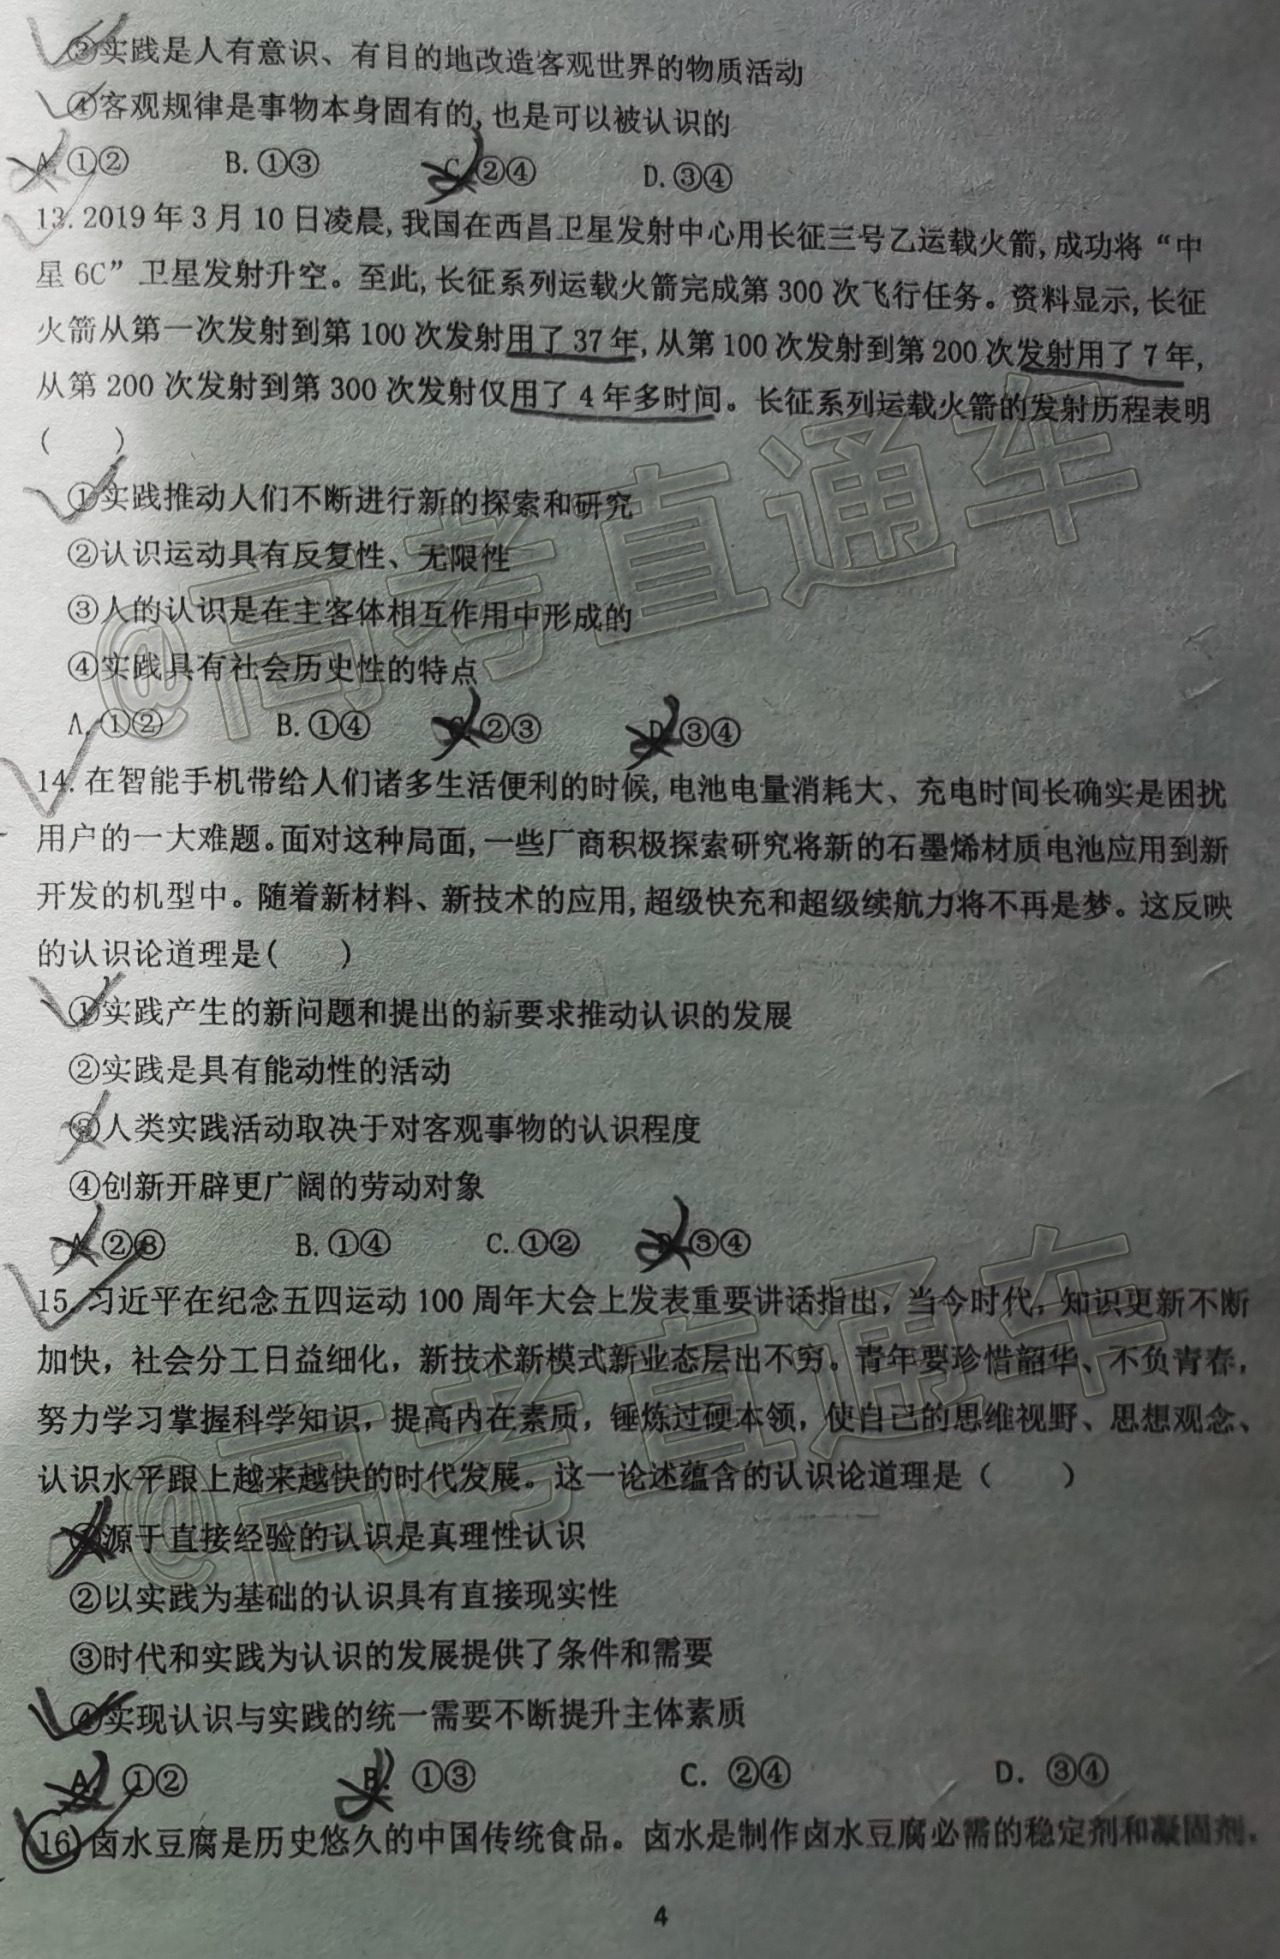 ③实践是人有意识、有目的地改造客观世界的物质活动
④客观规律是事物本身固有的,也是可以被认识的
A.①② B.①③ C.②④ D.③④
13.2019年3月10日凌晨,我国在西昌卫星发射中心用长征三号乙运载火箭,成功将“中
星6C”卫星发射升空。至此,长征系列运载火箭完成第300次飞行任务。资料显示,长征
火箭从第一次发射到第100次发射用了37年,从第100次发射到第200次发射用了7年,
从第200次发射到第300次发射仅用了4年多时间。长征系列运载火箭的发射历程表明
( )
①实践推动人们不断进行新的探索和研究
②认识运动具有反复性、无限性
③人的认识是在主客体相互作用中形成的
④实践具有社会历史性的特点
A.①② B.①④ C.②③ D.③④
14.在智能手机带给人们诸多生活便利的时候,电池电量消耗大、充电时间长确实是困扰
用户的一大难题。面对这种局面,一些厂商积极探索研究将新的石墨烯材质电池应用到新
开发的机型中。随着新材料、新技术的应用,超级快充和超级续航力将不再是梦。这反映
的认识论道理是( )
①实践产生的新问题和提出的新要求推动认识的发展
②实践是具有能动性的活动
③人类实践活动取决于对客观事物的认识程度
④创新开辟更广阔的劳动对象
A.②③ B.①④ C.①② D.③④
15.习近平在纪念五四运动100周年大会上发表重要讲话指出，当今时代，知识更新不断
加快，社会分工日益细化，新技术新模式新业态层出不穷。青年要珍惜韶华、不负青春，
努力学习掌握科学知识，提高内在素质，锤炼过硬本领，使自己的思维视野、思想观念、
认识水平跟上越来越快的时代发展。这一论述蕴含的认识论道理是（ ）
①源于直接经验的认识是真理性认识
②以实践为基础的认识具有直接现实性
③时代和实践为认识的发展提供了条件和需要
④实现认识与实践的统一需要不断提升主体素质
A. ①② B. ①③ C. ②④ D. ③④
16.卤水豆腐是历史悠久的中国传统食品。卤水是制作卤水豆腐必需的稳定剂和凝固剂，
4
@高考直通车
@高考直通车